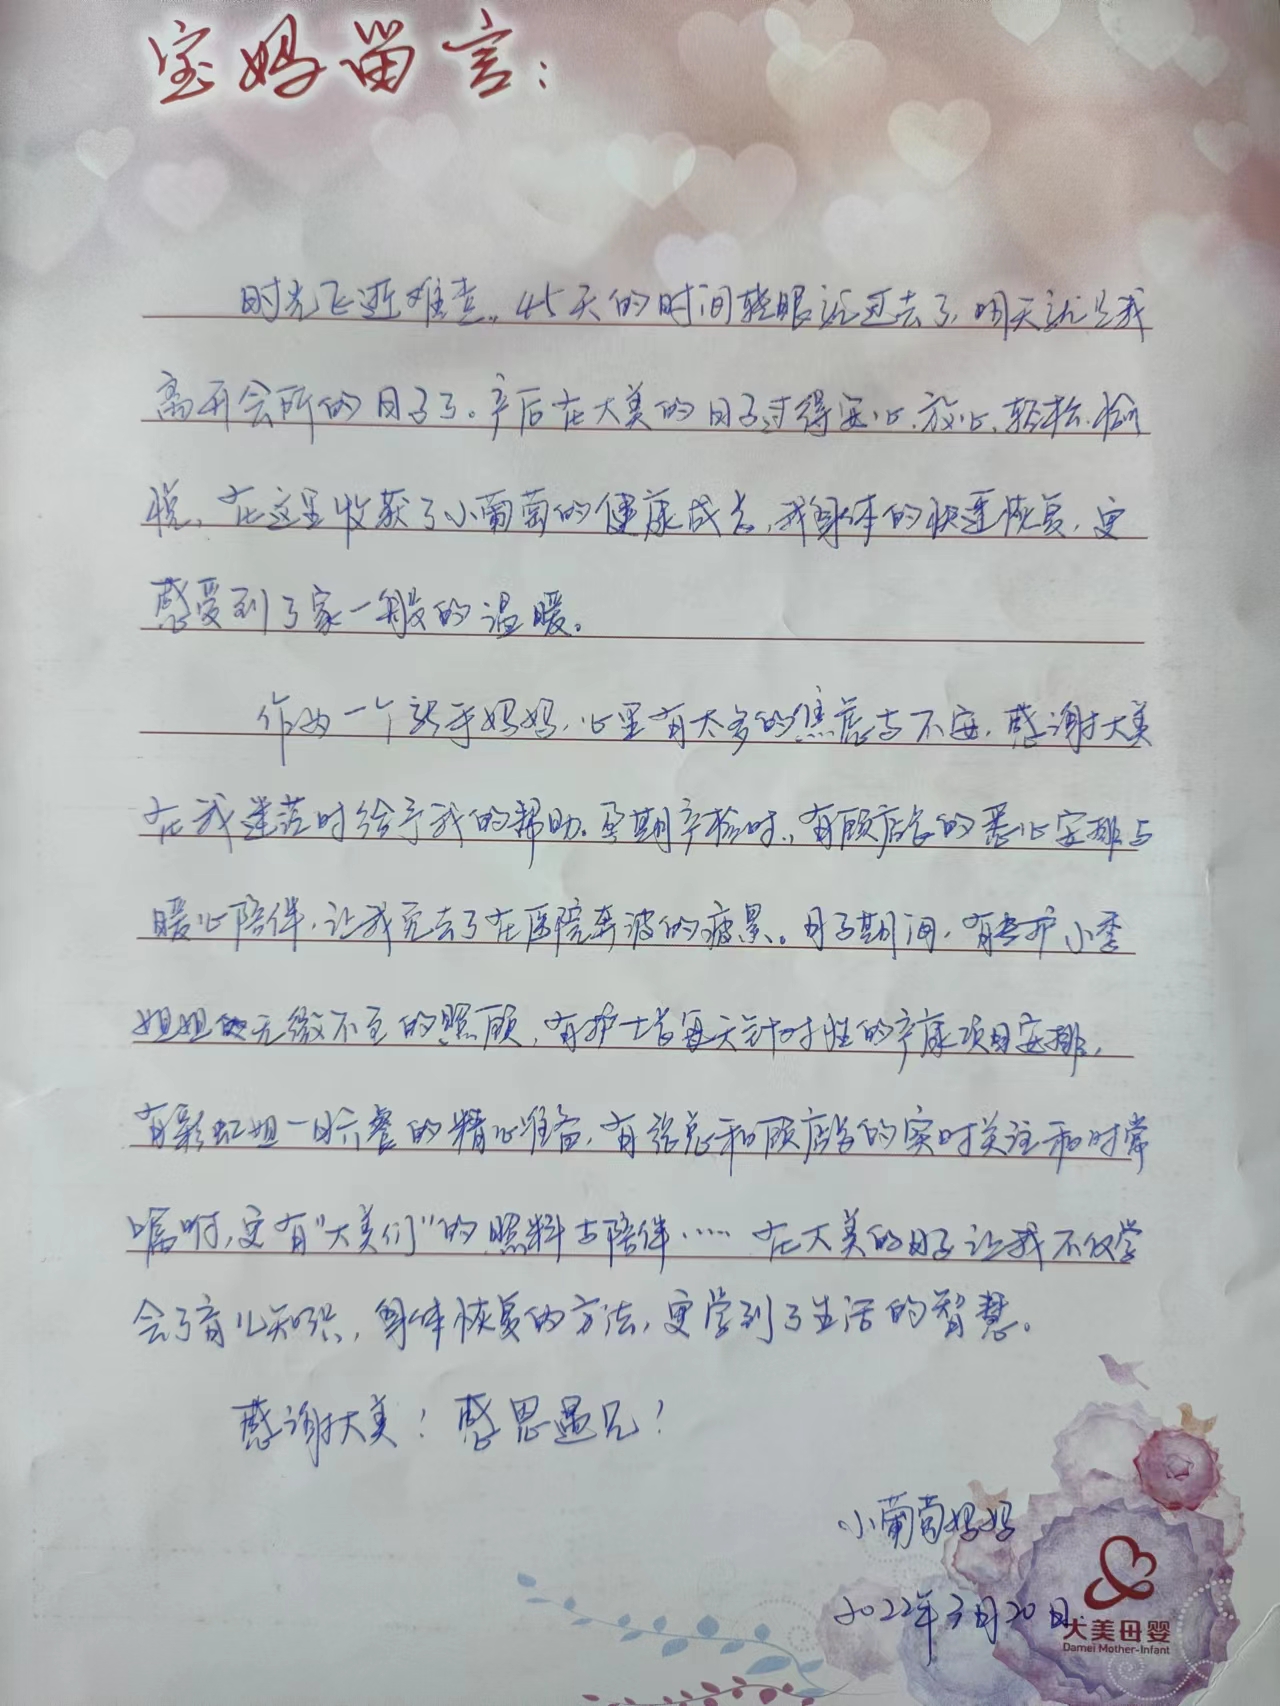 宝妈留言:
时光飞逝难
45天的时间转眼就过去了,明天就是我
离开会所的日子了。产后在大美的日子过得安心、放心、轻松、愉
悦,在这里收获了小葡萄的健康成长,我身体的快速恢复,更
感受到了家一般的温暖。
作为一个新手妈妈,心里有太多的焦虑与不安,感谢大美
在我迷茫时给予我的帮助。孕期产检时,有顾店长的悉心安排与
暖心陪伴,让我免去了在医院奔波的疲累。月子期间,有专护小季
姐姐的无微不至的照顾,有护士长每天针对性的产康项目安排,
有彩虹姐一日六餐的精心准备,有 总和顾店长的实时关注和时常
嘱咐,更有“大美们”的照料与陪伴…… 在大美的日子让我不仅学
会了育儿知识,身体恢复的方法,更学到了生活的智慧。
感谢大美!感恩遇见!
小葡萄妈妈
2022年3月20日
大美母婴
Damei Mother-Infant